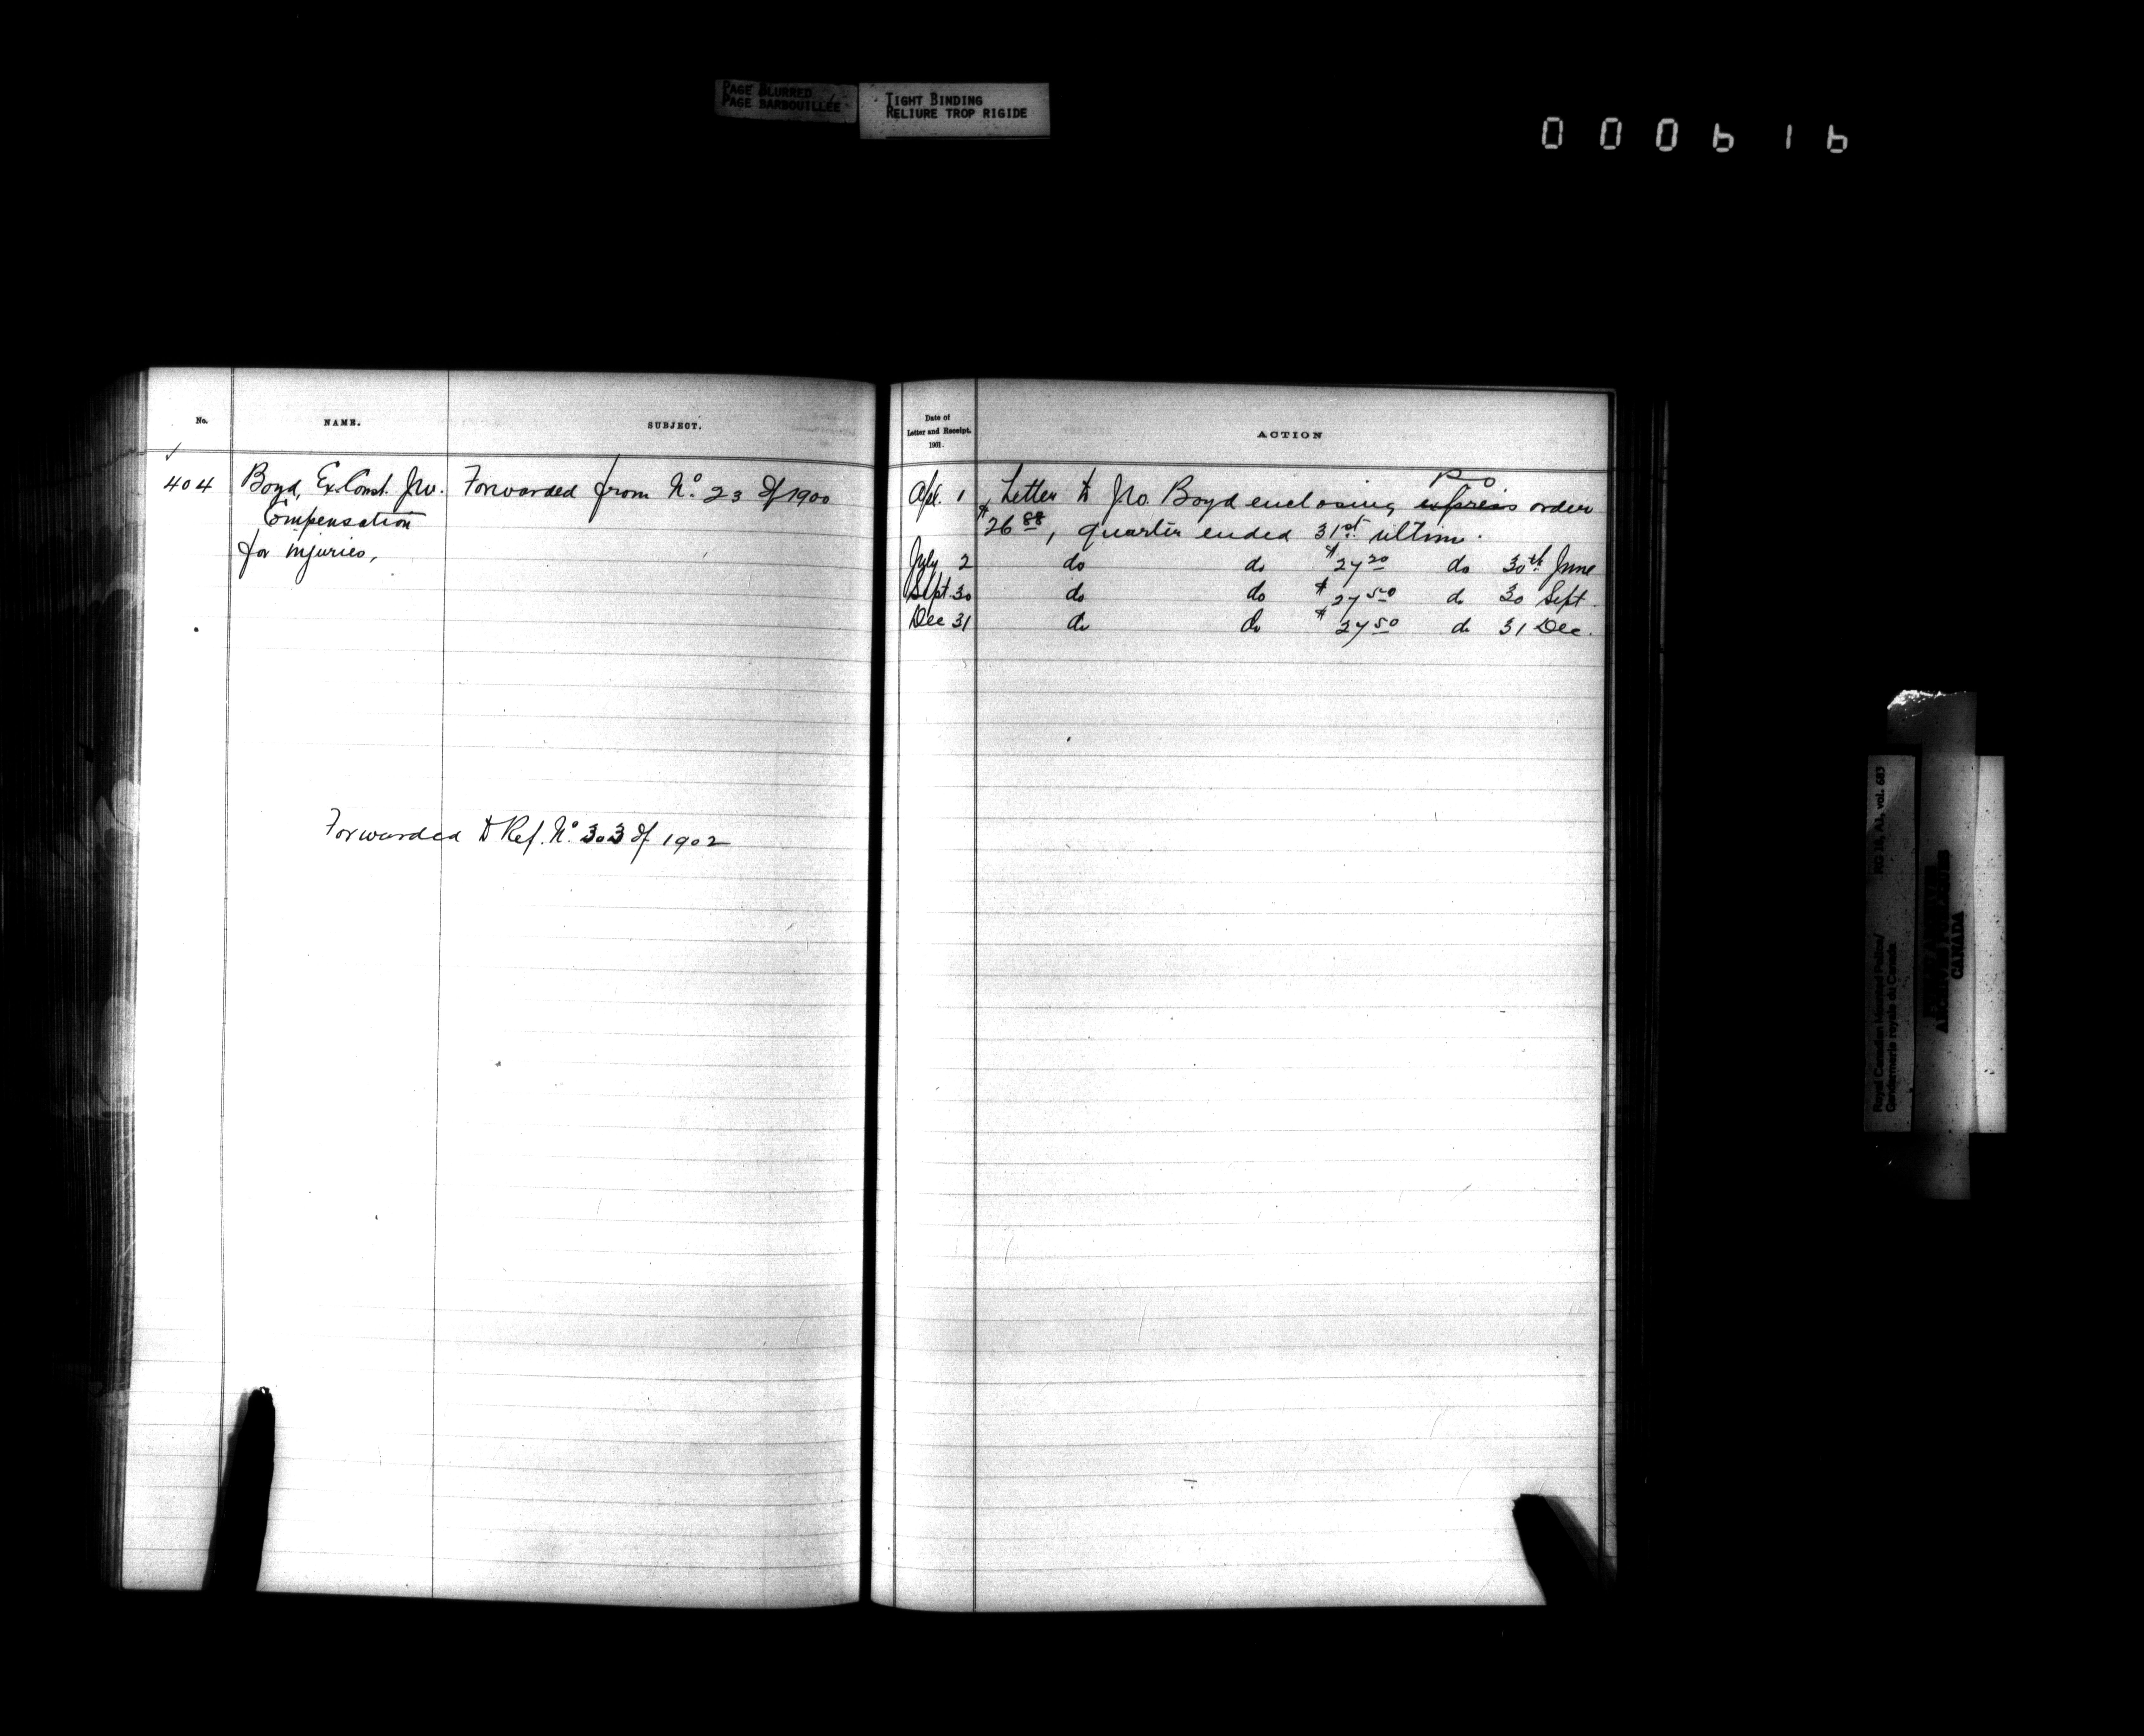 PAGE BLURRED
PAGE BARBOUILLÉE
TIGHT BINDING
RELIURE TROP RIGIDE
000616
No.
NAME.
SUBJECT.
404
Boyd, Ex. Const. Jno.
Compensation
for injuries,
Forwarded from No. 23 of 1900
Forwarded to Ref. No. 303 of 1902
Date of
Letter and Receipt.
1901.
ACTION
P O
Apl. 1 Letter to Jno. Boyd enclosing express order
$26 88, quarter ended 31st ultimo.
July 2 do do $27 20 do 30th June
Sept. 30 do do $27 50 do 30 Sept.
Dec 31 do do $27 50 do 31 Dec.
Royal Canadian Mounted Police/ RG 18, A1, vol. 683
Gendarmerie royale du Canada
CANADA